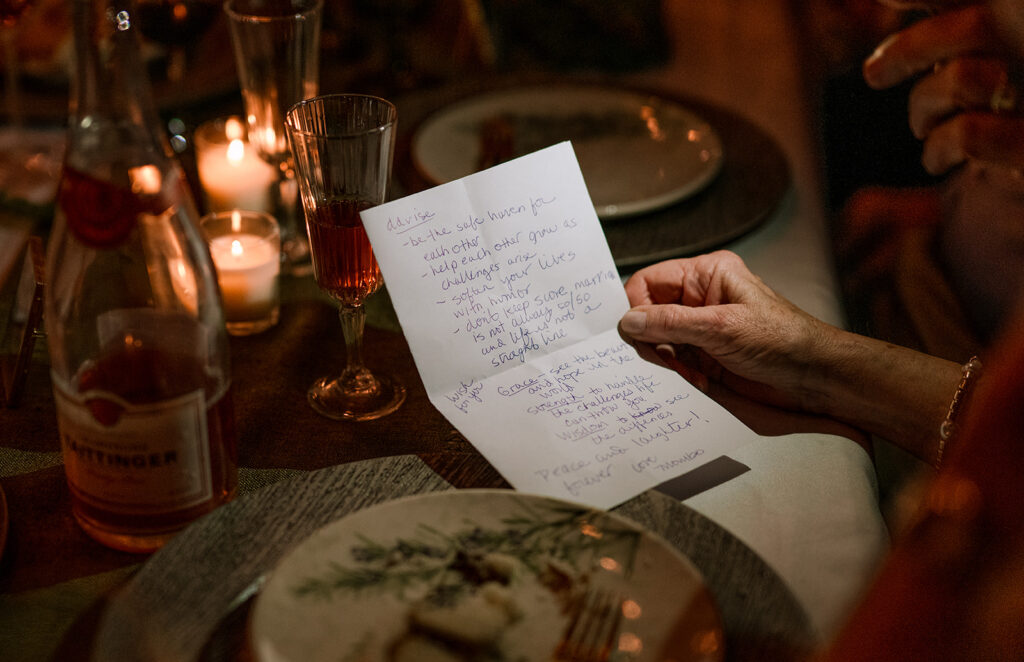 advise
- be the safe haven for
each other
- help each other grow as
challenges arise
- soften your lives
with humor
- don't keep score, marriage
is not always 50/50
and life is not a
straight line
wish
for you
Grace - see the beauty
and hope in the
world
strength to handle
the challenges life
can throw you
Wisdom to see
the differences
Peace and laughter!
forever love
Mombo
TAITTINGER